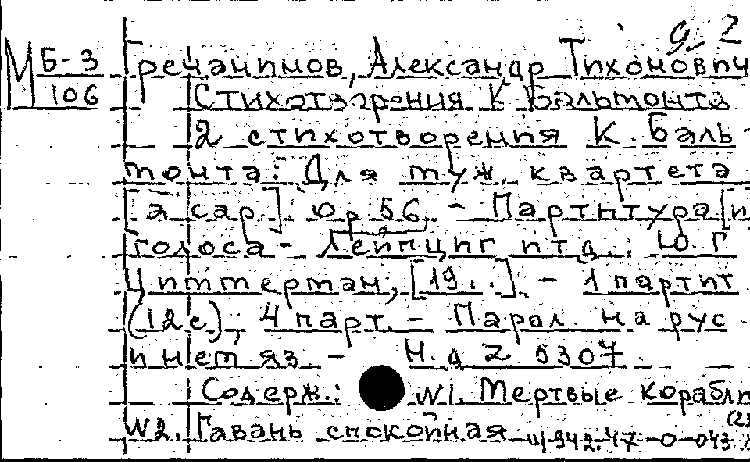 д. 2
М Б-3 Гречанинов, Александр Тихонович
106 Стихотворения К. Бальмонта
2 стихотворения К. Баль-
монта: Для муж. квартета
[a cap.] op 56. - Партитура [и
голоса - Лейпциг и тд.: Ю. Г.
Циммерман, [19..]. - 1 партит.
(12 с); 4 парт. - Парал. на рус
и нем яз. - Н. д Z 5307.
Содерж.: N1. Мертвые корабли
N2. Гавань спокойная